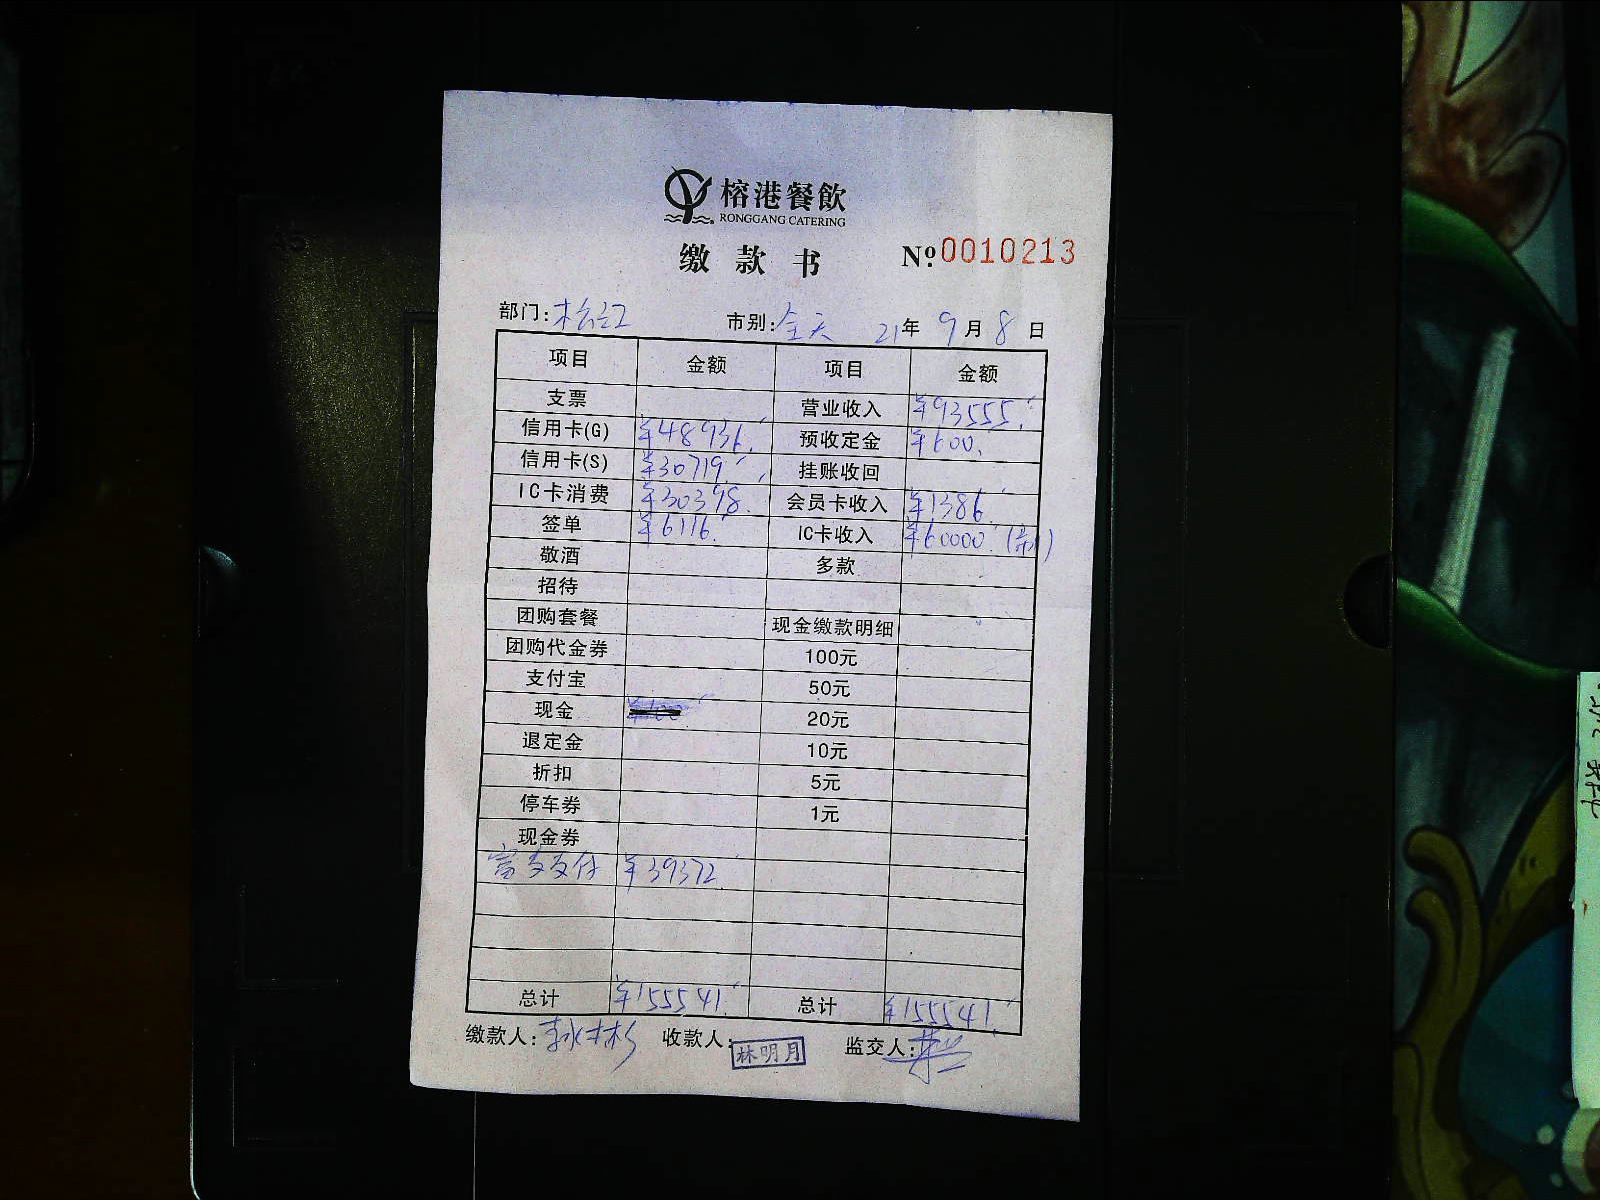 榕港餐飲
RONGGANG CATERING
缴款书 Nº 0010213
部门: 松江 市别: 全天 21年 9月 8日
项目 金额 项目 金额
支票 营业收入 ¥93555.
信用卡(G) ¥48936. 预收定金 ¥600.
信用卡(S) ¥30719. 挂账收回
IC卡消费 ¥30398. 会员卡收入 ¥1386.
签单 ¥6116. IC卡收入 ¥60000.
敬酒 多款
招待
团购套餐 现金缴款明细
团购代金券 100元
支付宝 50元
现金 20元
退定金 10元
折扣 5元
停车券 1元
现金券
富友支付 ¥39372
总计 ¥155541. 总计 ¥155541.
缴款人: 收款人: 林明月 监交人: